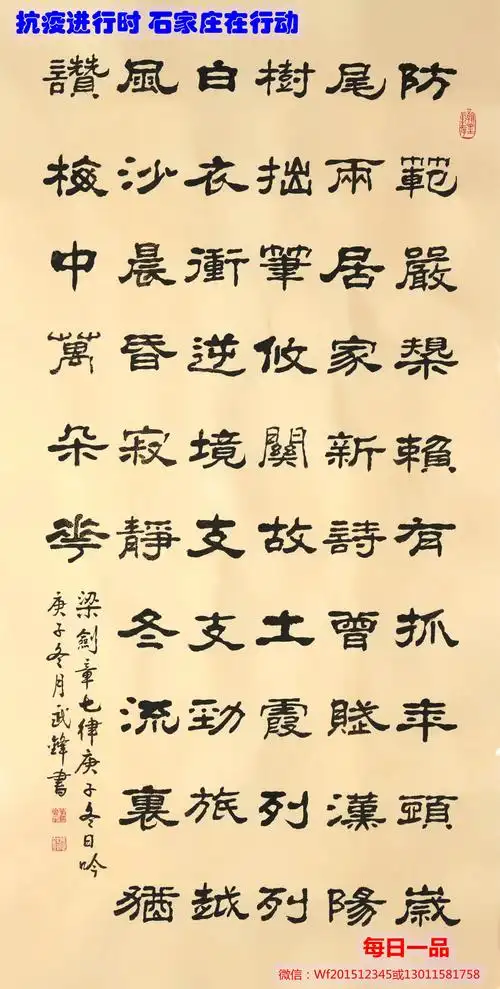 抗疫进行时 石家庄在行动
防範嚴槼賴有抓年頭歲
尾兩居家新詩曾賦漢陽
樹拙筆攸關故土霞列列
白衣衝逆境支支勁旅越
風沙晨昏寂靜冬流裏猶
讚梅中萬朵花
梁劍章七律庚子冬日吟
庚子冬月武鋒書
每日一品
微信：Wf201512345或13011581758